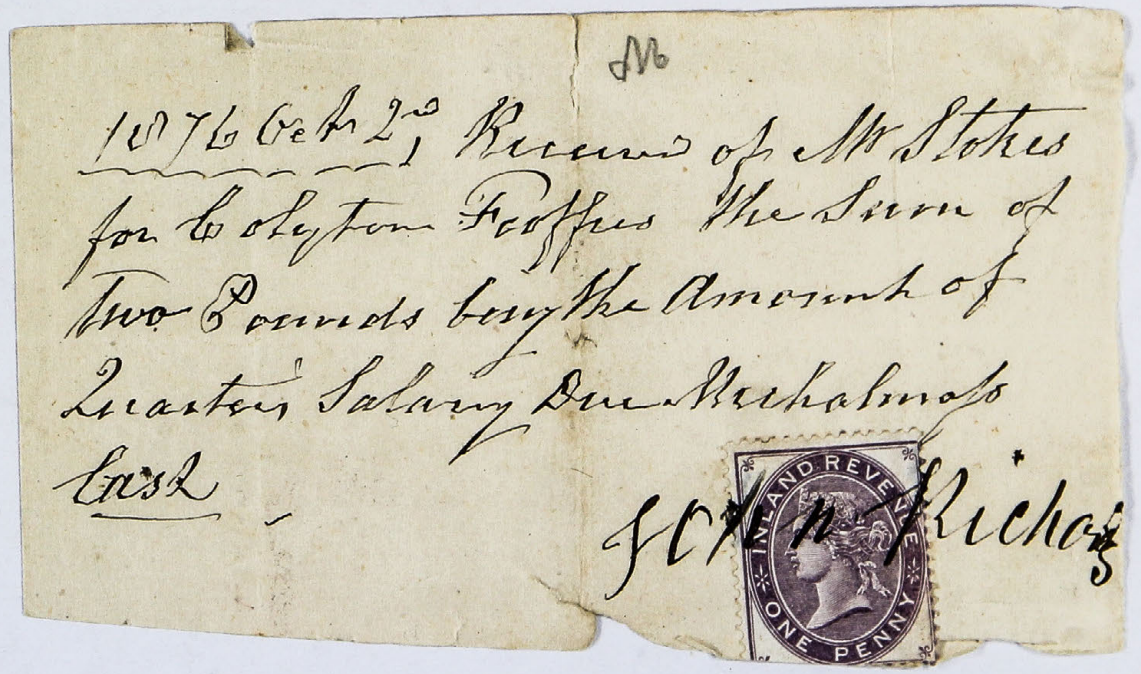 M
1876 Octr 2nd, Received of Mr Stokes
for Colyton Feoffees the Sum of
Two Pounds being the Amount of
Quarter's Salary Due Michalmass
Last
John Richards
INLAND REVENUE
ONE PENNY